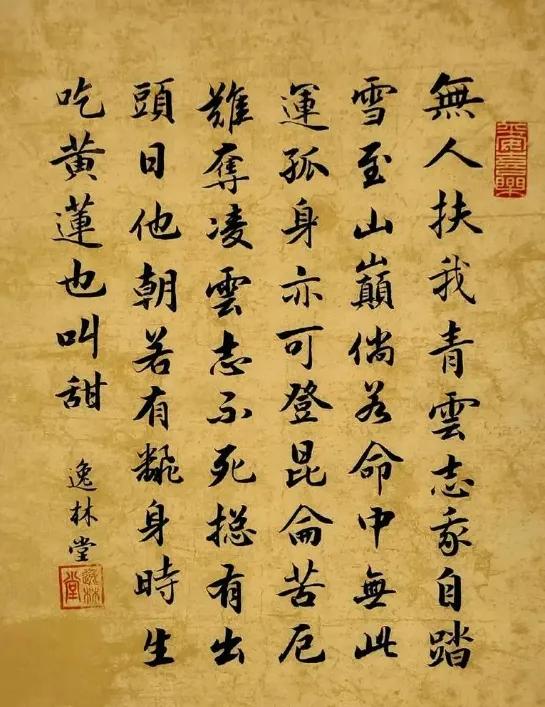 無人扶我青雲志我自踏
雪至山巔倘若命中無此
運孤身亦可登昆侖苦厄
難奪凌雲志不死總有出
頭日他朝若有飜身時生
吃黃蓮也叫甜
逸林堂
逸林堂